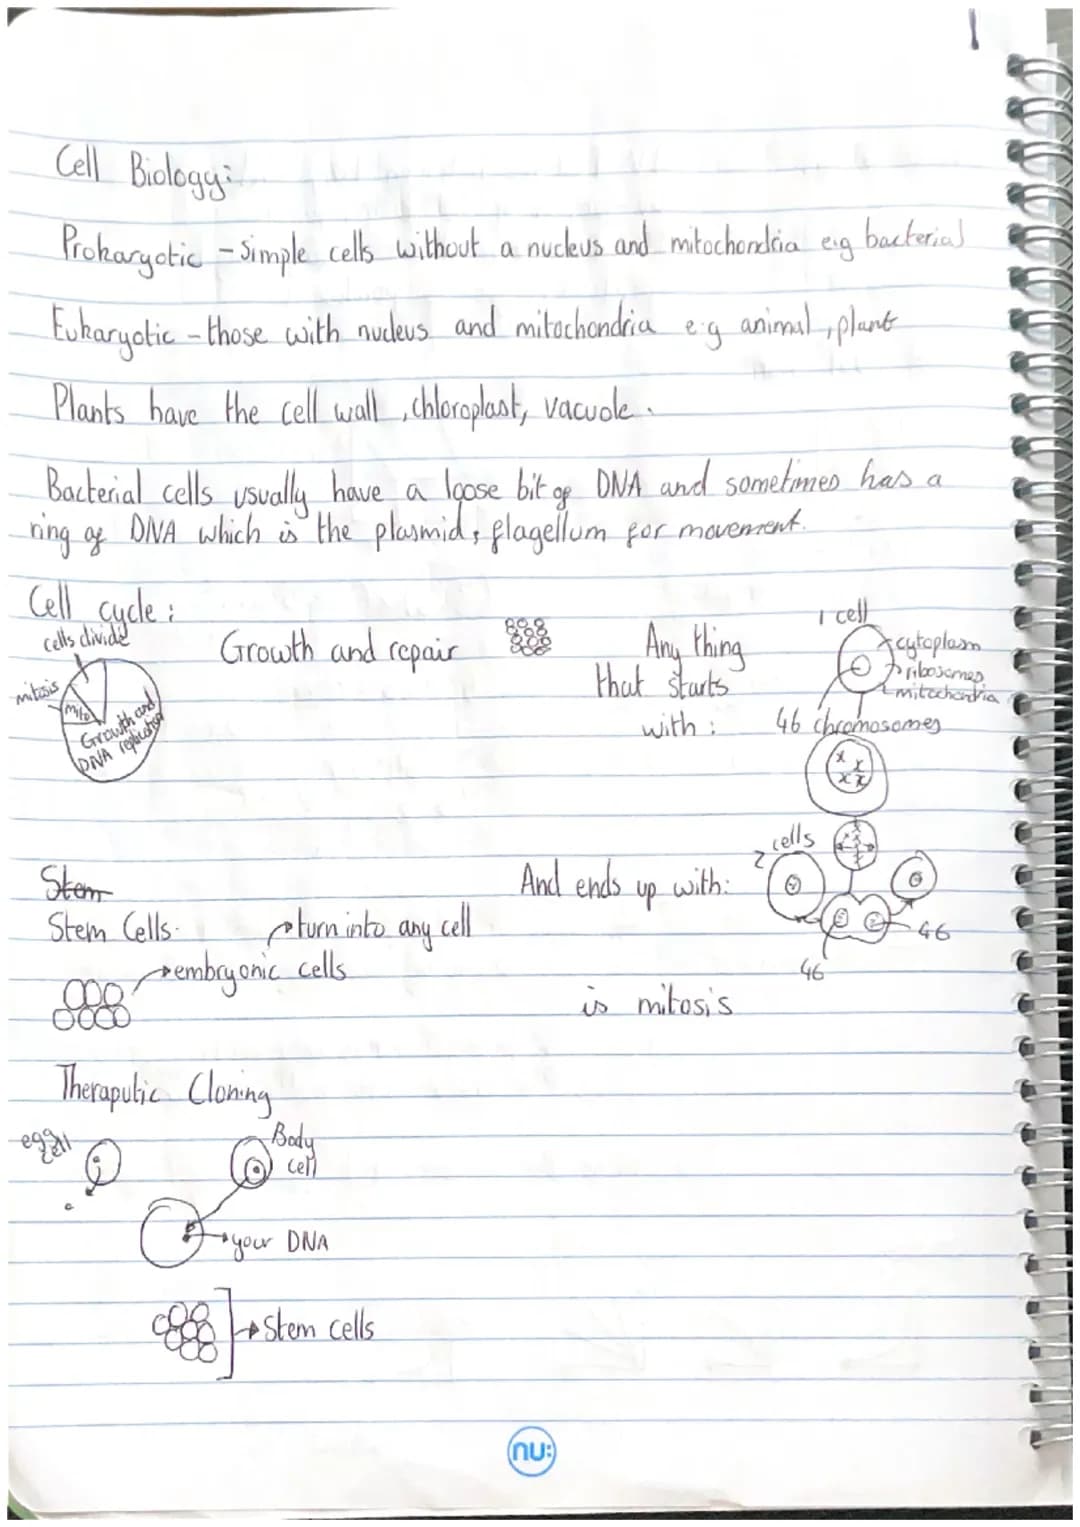 1
Cell Biology:
Prokaryotic - Simple cells without a nucleus and mitochondria e.g bacterial
Eukaryotic - those with nucleus and mitochondria e.g animal, plant
Plants have the cell wall, chloroplast, vacuole.
Bacterial cells usually have a loose bit of DNA and sometimes has a
ring of DNA which is the plasmid, flagellum for movement.
Cell cycle:
cells divide
mitosis
mito
Growth and
DNA replication
Growth and repair
Any thing
that starts
with:
1 cell
cytoplasm
ribosomes
mitochondria
46 chromosomes
And ends up with:
2 cells
46
46
is mitosis
Stem
Stem Cells.
turn into any cell
embryonic cells
Theraputic Cloning
egg
cell
Body
cell
your DNA
Stem cells
nu: